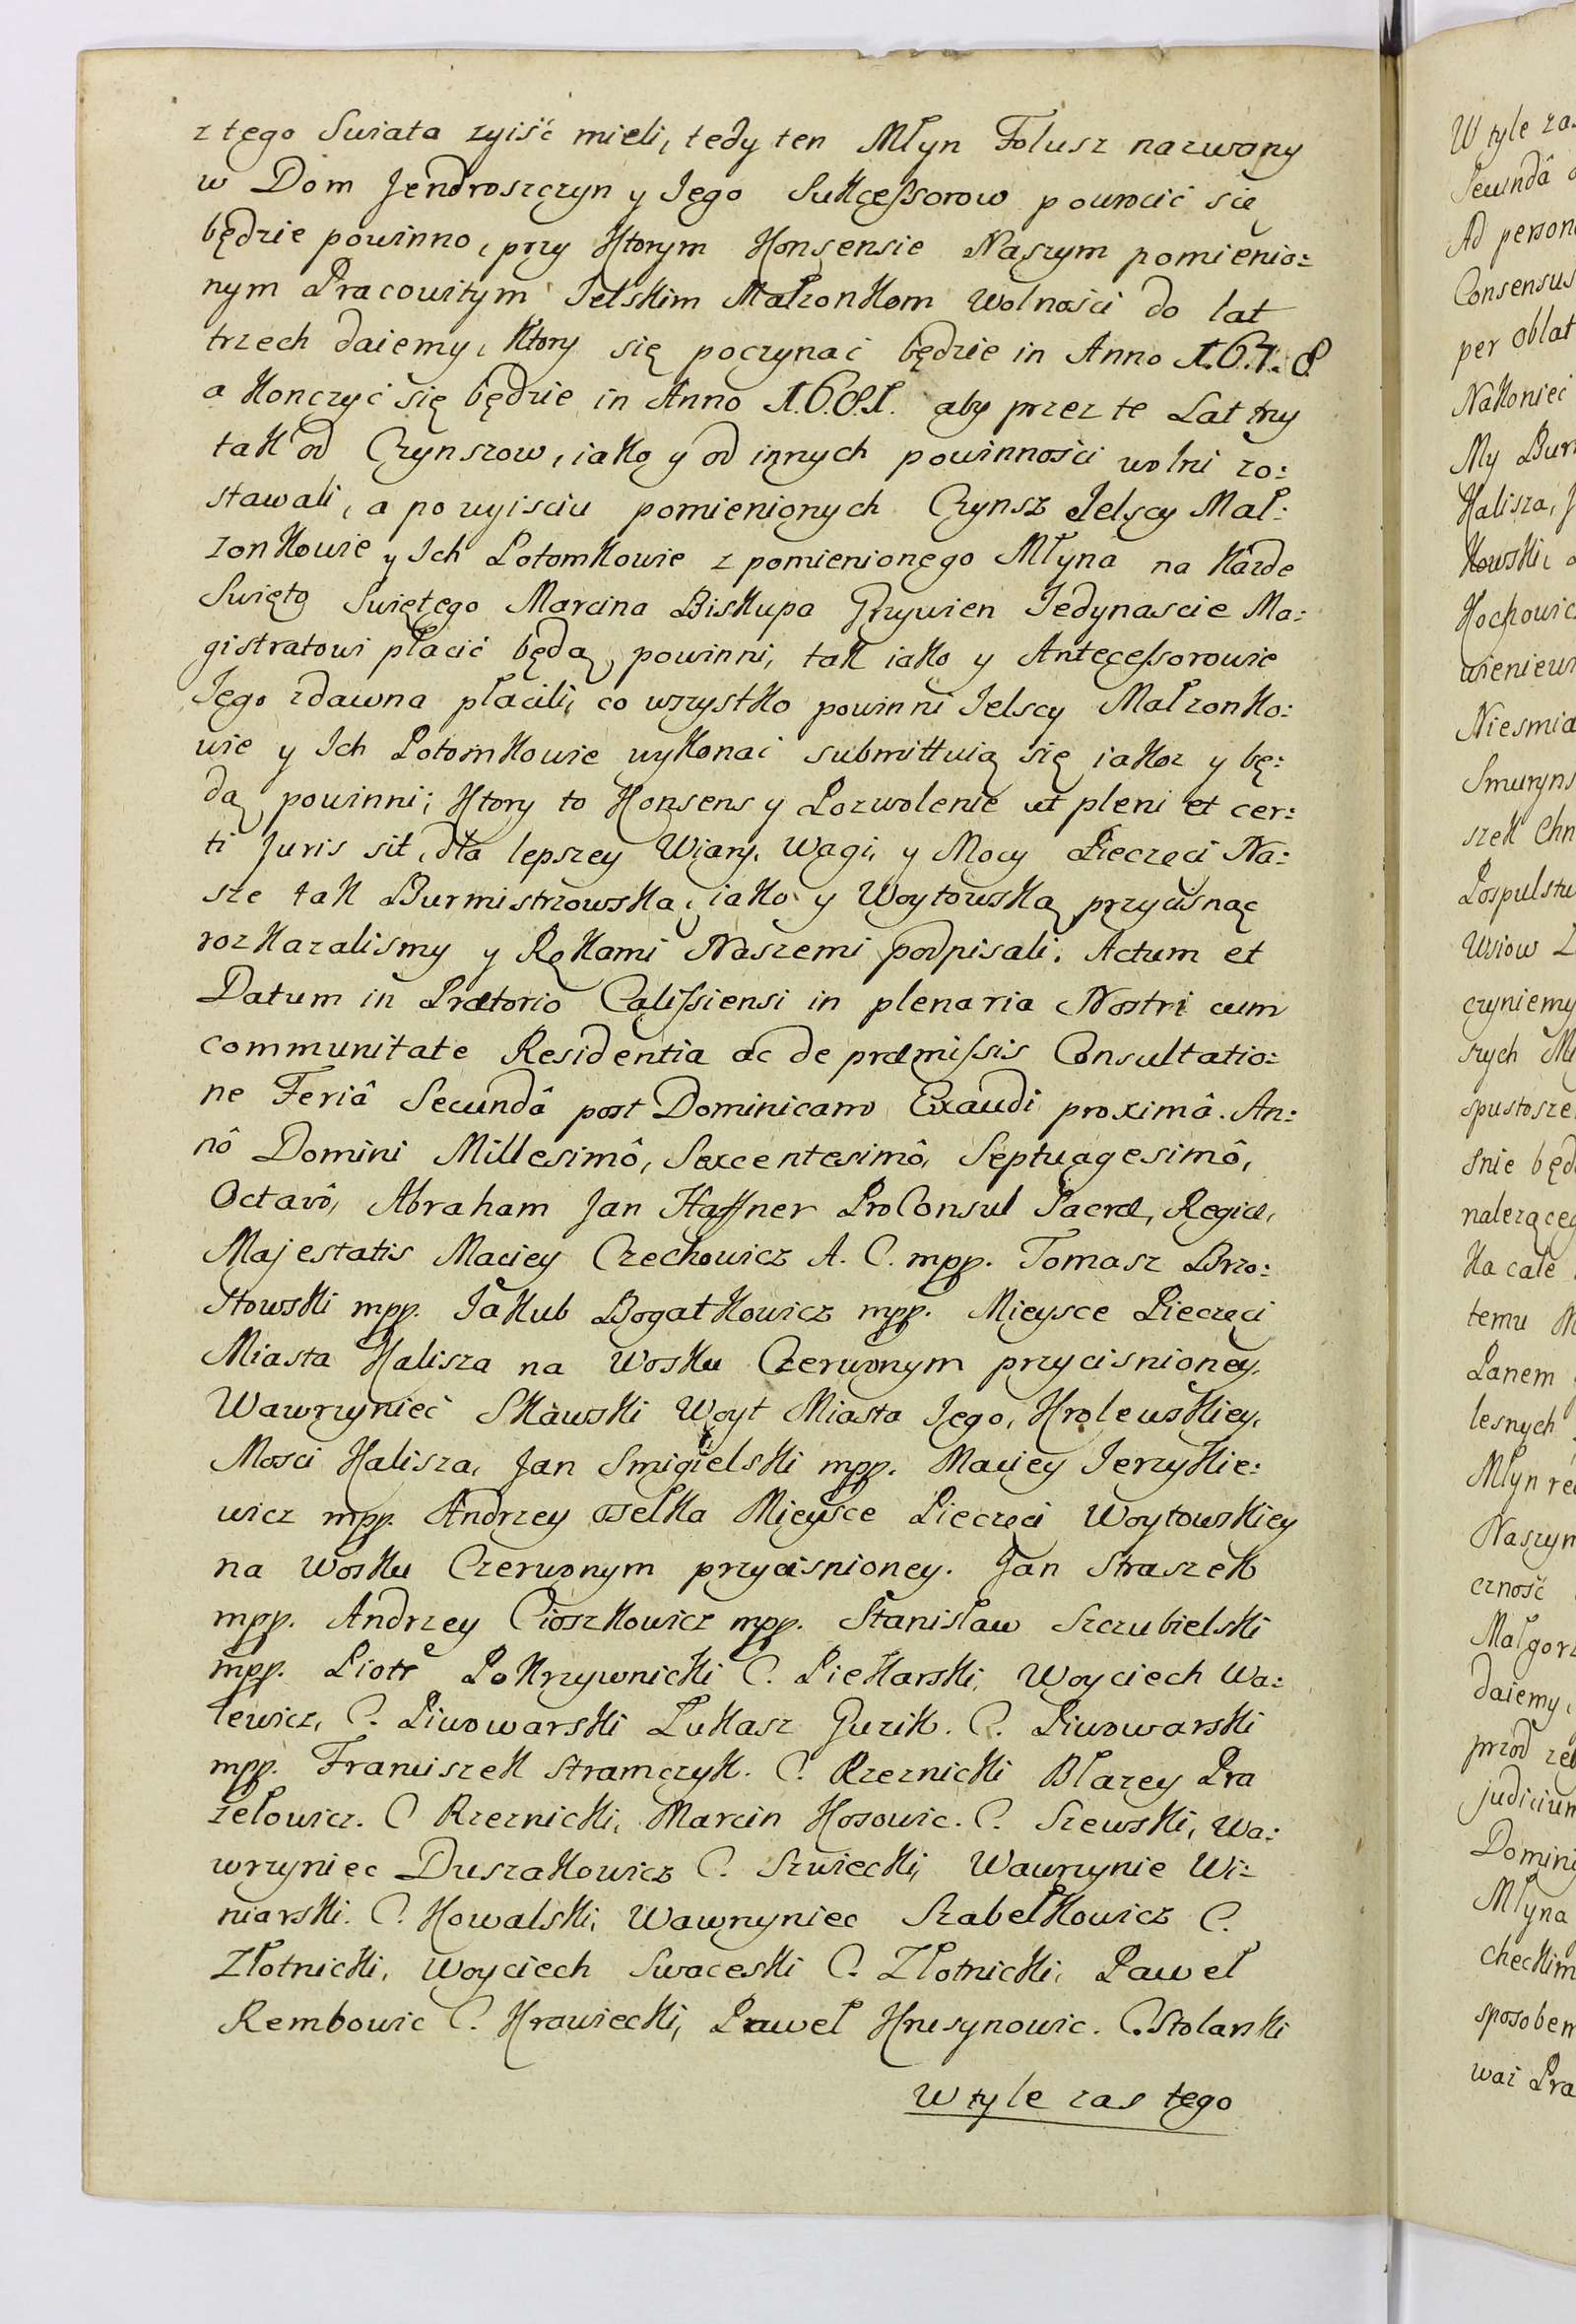 z tego Swiata zyiść mieli, tedy ten Młyn Folusz nazwany
w Dom Jendroszczyn y Jego Sukcessorow powrocic się
będzie powinno, przy ktorym Konsensie Naszym pomienio:
nym Pracowitym Jelskim Małzonkom Wolności do lat
trzech daiemy, ktory się poczynać będzie in Anno 1.6.7.8.
a konczyć się będzie in Anno 1.6.8.1. aby przez te Lat trzy
tak od Czynszow, iako y od innych powinności wolni zo:
stawali, a po wyisciu pomienionych Czynsz Jelscy Mał:
zonkowie y Ich Potomkowie z pomienionego Młyna na każde
Swięto Swiętego Marcina Biskupa Grzywien Jedynascie Ma:
gistratowi płacić będą powinni, tak iako y Antecessorowie
Jego zdawna płacili, co wszystko powinni Jelscy Małzonko:
wie y Ich Potomkowie wykonać submittuią się iakoz y bę:
dą powinni; ktory to Konsens y Pozwolenie ut pleni et cer:
ti Juris sit, dla lepszey Wiary, Wagi, y Mocy Pieczęci Na:
sze tak Burmistrzowską, iako y Woytowską przycisnąc
rozkazalismy y Rękami Naszemi podpisali. Actum et
Datum in Prætorio Calissiensi in plenaria Nostri cum
communitate Residentia ac de præmissis Consultatio:
ne Feriâ Secundâ post Dominicam Exaudi proximâ. An:
nô Domini Millesimô, Sexcentesimô, Septuagesimô,
Octavô, Abraham Jan Haffner ProConsul Sacræ, Regiæ,
Majestatis Maciey Czechowicz A. C. mpp. Tomasz Brzo:
stowski mpp. Jakub Bogatkowicz mpp. Mieysce Pieczęci
Miasta Kalisza na Wosku Czerwonym przycisnioney,
Wawrzyniec Skawski Woyt Miasta Jego, Krolewskiey,
Mosci Kalisza, Jan Smigielski mpp. Maciey Jerzykie:
wicz mpp. Andrzey Osełka Mieysce Pieczęci Woytowskiey
na Wosku Czerwonym przycisnioney. Jan Straszek
mpp. Andrzey Cioszkowicz mpp. Stanisław Szczubielski
mpp. Piotr Pokrzywnicki C. Piekarski, Woyciech Wa:
lewicz, C. Piwowarski Łukasz Guzik. C. Piwowarski
mpp. Franciszek Stramczyk. C. Rzeznicki Błazey Pra
zełowicz. C Rzeznicki, Marcin Kosowic. C. Szewski, Wa:
wrzyniec Duszakowicz C. Szwiecki, Wawrzynie Wi:
niarski. C. Kowalski, Wawrzyniec Szabełkowicz C.
Złotnicki, Woyciech Swaceski C. Złotnicki, Paweł
Rembowic C. Krawiecki, Paweł Krusynowic. C. Stolarski
W tyle zas tego
W tyle zas
Secundâ
Ad person
Consensus
per oblat
Nakoniec
My Bur
Kalisza, J
kowski,
Kochowic
wieniew
Niesmia
Smuryns
szek Chn
Pospulstw
Wsiow
czyniemy
szych Mł
spustosze
snie będ
naleząceg
ka cale
temu
Panem
lesnych
Młyn re
Naszym
czność
Małgorz
daiemy,
przod zeb
judicium
Domini
Młyna
checkim
sposobem
wac Pra